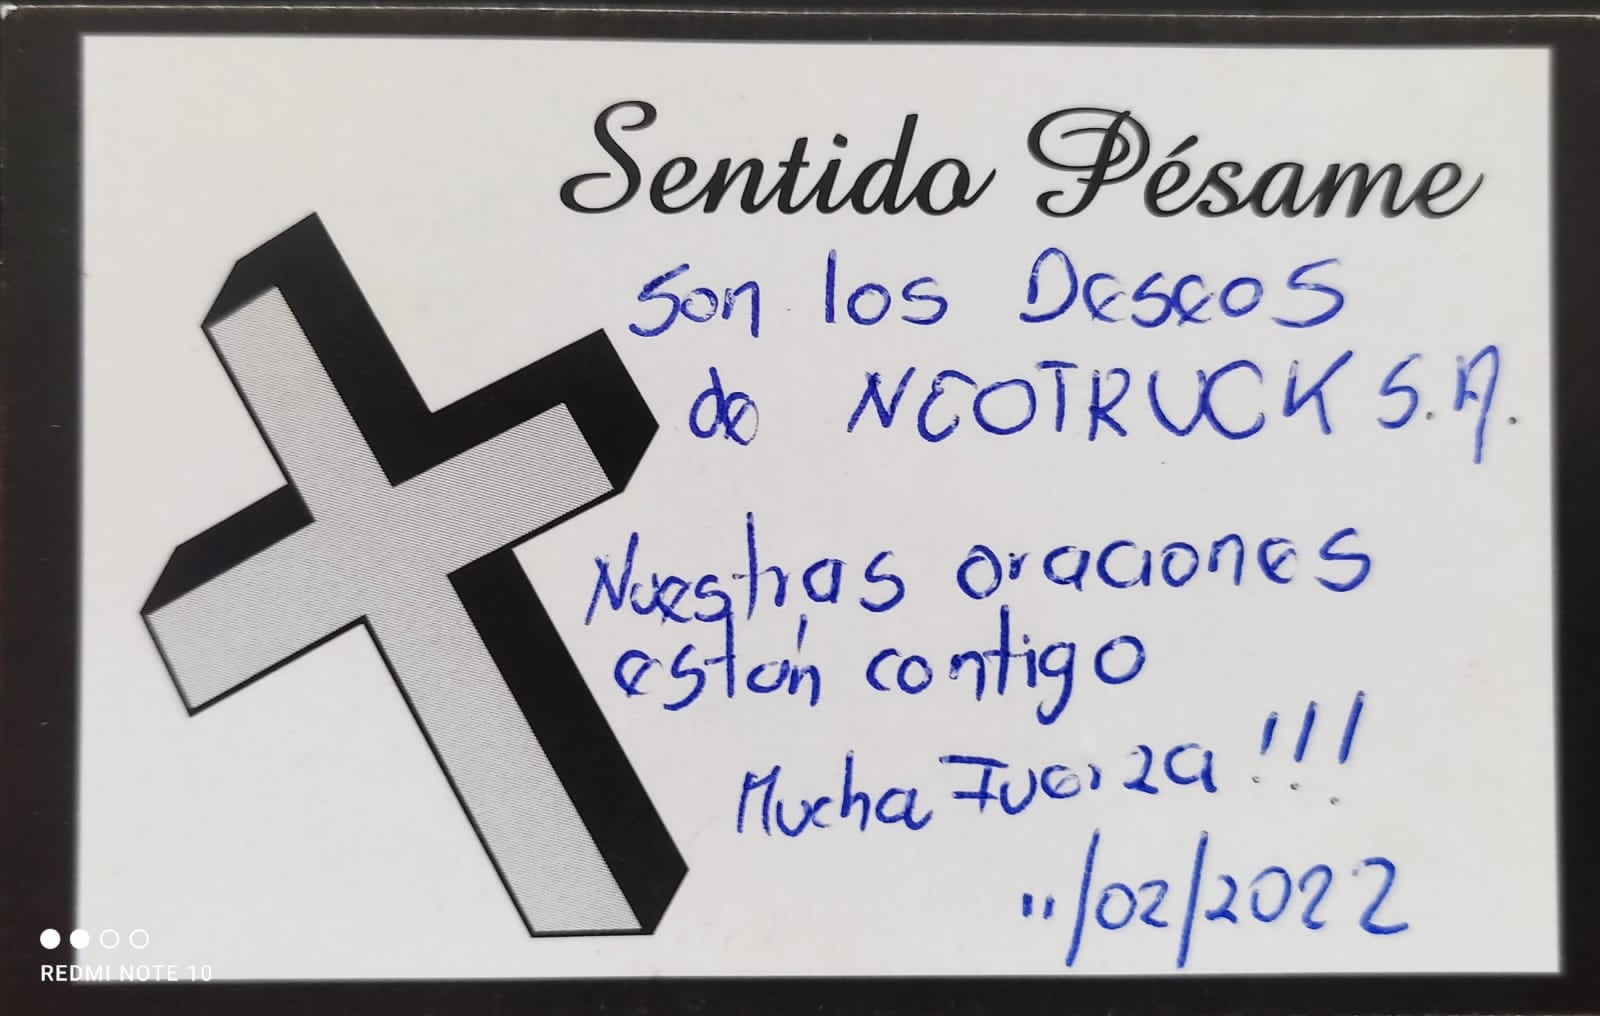 Sentido Pésame
Son los Deseos
de NEOTRUCK S.A.
Nuestras oraciones
están contigo
Mucha Fuerza!!!
"/02/2022
REDMI NOTE 10